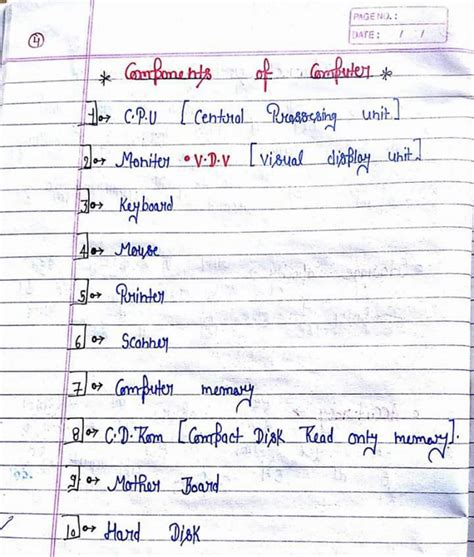 PAGE NO. :
DATE : / /
4
* Components of Computer *
1 → C.P.U [Central Prosocsing unit]
2 → Moniter • V.D.V [visual display unit]
3 → Keyboard
4 → Mouse
5 → Printer
6 → Scanner
7 → Computer memory
8 → C.D.Rom [Compact Disk Read only memory].
9 → Mother Board
10 → Hard Disk